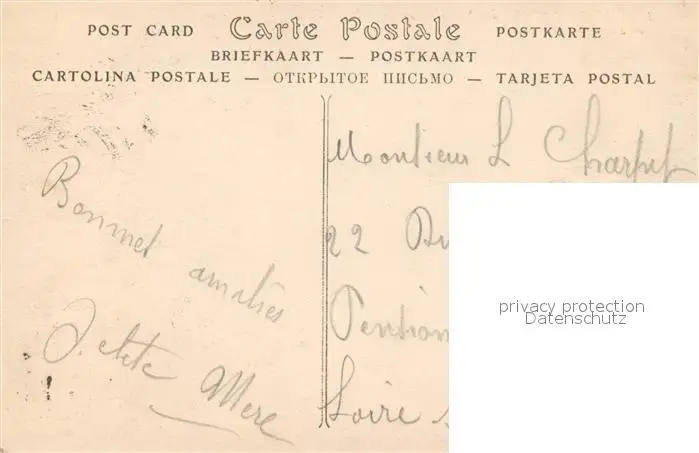 POST CARD Carte Postale POSTKARTE
BRIEFKAART — POSTKAART
CARTOLINA POSTALE — ОТКРЫТОЕ ПИСЬМО — TARJETA POSTAL
Bonmet
amitiés
Petite Mere
Monsieur L
22
Pension
Loire
privacy protection
Datenschutz